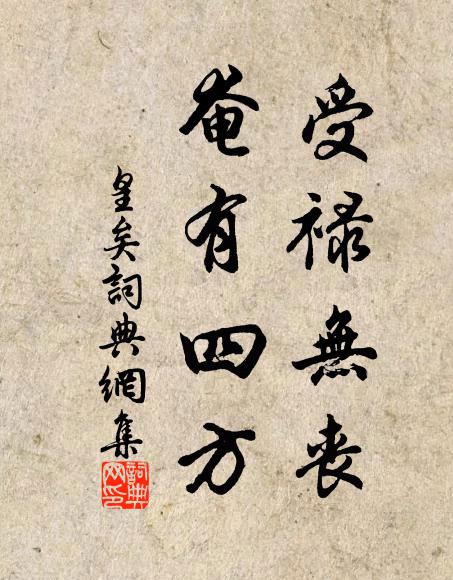 受禄無喪
奄有四方
皇矣詞典網集
詞典
网印